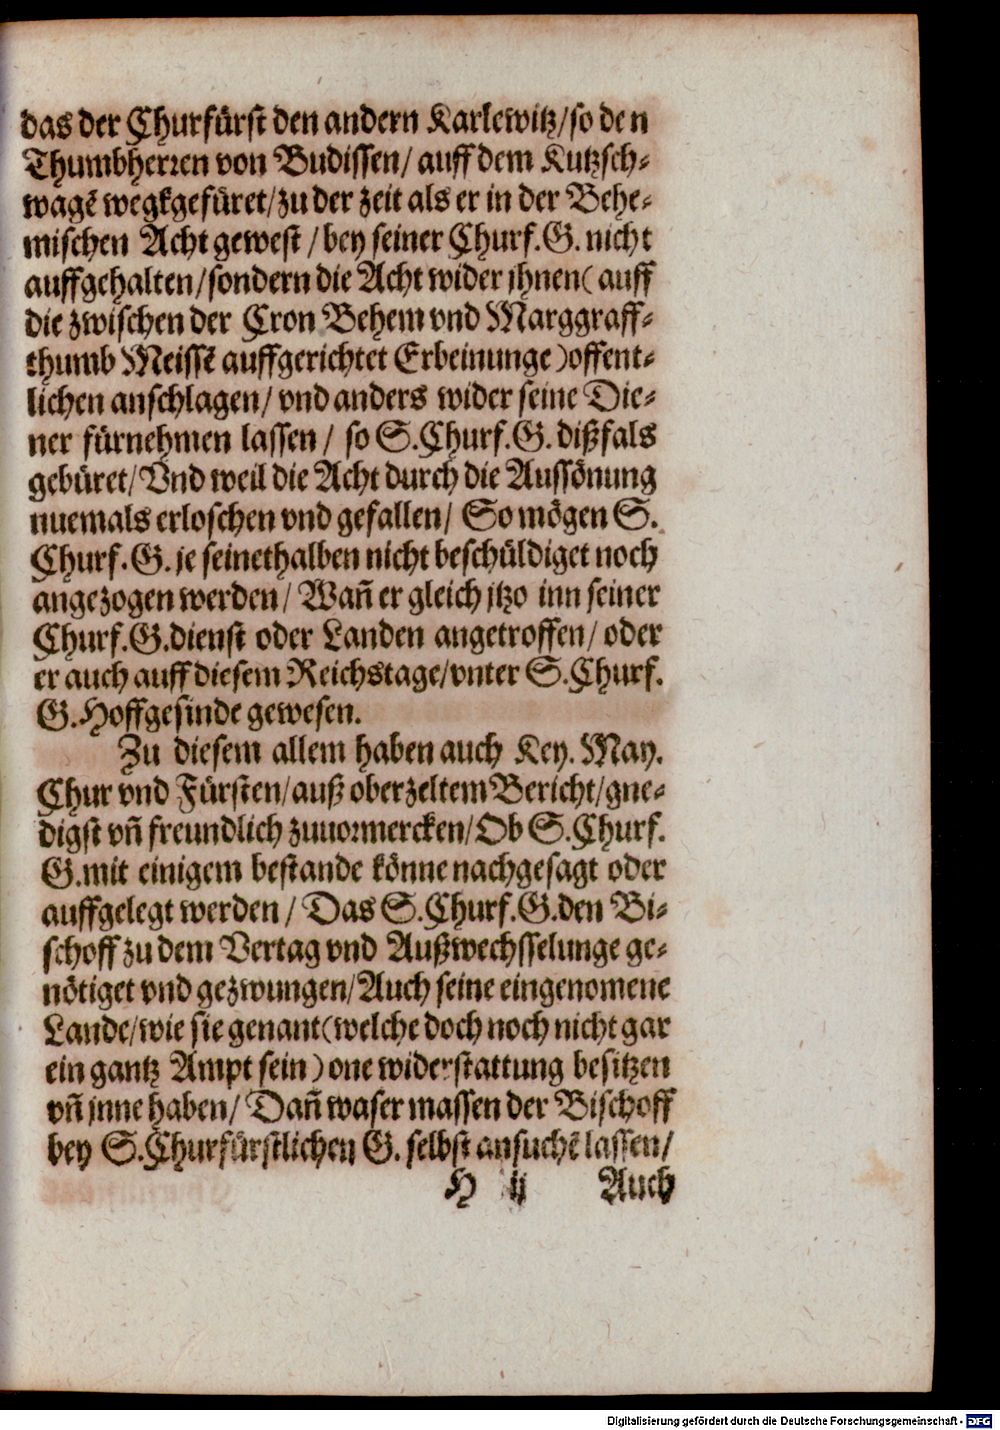 das der Churfürst den andern Karlewitz/so den
Thumbherren von Budissen/ auff dem Kutzsch-
wagē wegkgefüret/zu der zeit als er in der Behe-
mischen Acht gewest / bey seiner Churf.G. nicht
auffgehalten/sondern die Acht wider jhnen( auff
die zwischen der Cron Behem vnd Marggraff-
thumb Meissē auffgerichtet Erbeinunge )offent-
lichen anschlagen/ vnd anders wider seine Die-
ner fürnehmen lassen / so S.Churf.G. dißfals
gebüret/ Vnd weil die Acht durch die Aussönung
nuemals erloschen vnd gefallen/ So mögen S.
Churf.G. je seinethalben nicht beschüldiget noch
angezogen werden/ Wañ er gleich jtzo inn seiner
Churf.G.dienst oder Landen angetroffen/ oder
er auch auff diesem Reichstage/vnter S.Churf.
G.Hoffgesinde gewesen.
Zu diesem allem haben auch Key. May.
Chur vnd Fürsten/auß oberzeltem Bericht/gne-
digst vñ freundlich zuuormercken/Ob S.Churf.
G.mit einigem bestande könne nachgesagt oder
auffgelegt werden / Das S.Churf.G.den Bi-
schoff zu dem Vertag vnd Außwechsselunge ge-
nötiget vnd gezwungen/Auch seine eingenomene
Lande/wie sie genant(welche doch noch nicht gar
ein gantz Ampt sein ) one widerstattung besitzen
vñ jnne haben/ Dañ waser massen der Bischoff
bey S.Churfürstlichen G. selbst ansuchē lassen/
H ij Auch
Digitalisierung gefördert durch die Deutsche Forschungsgemeinschaft - DFG